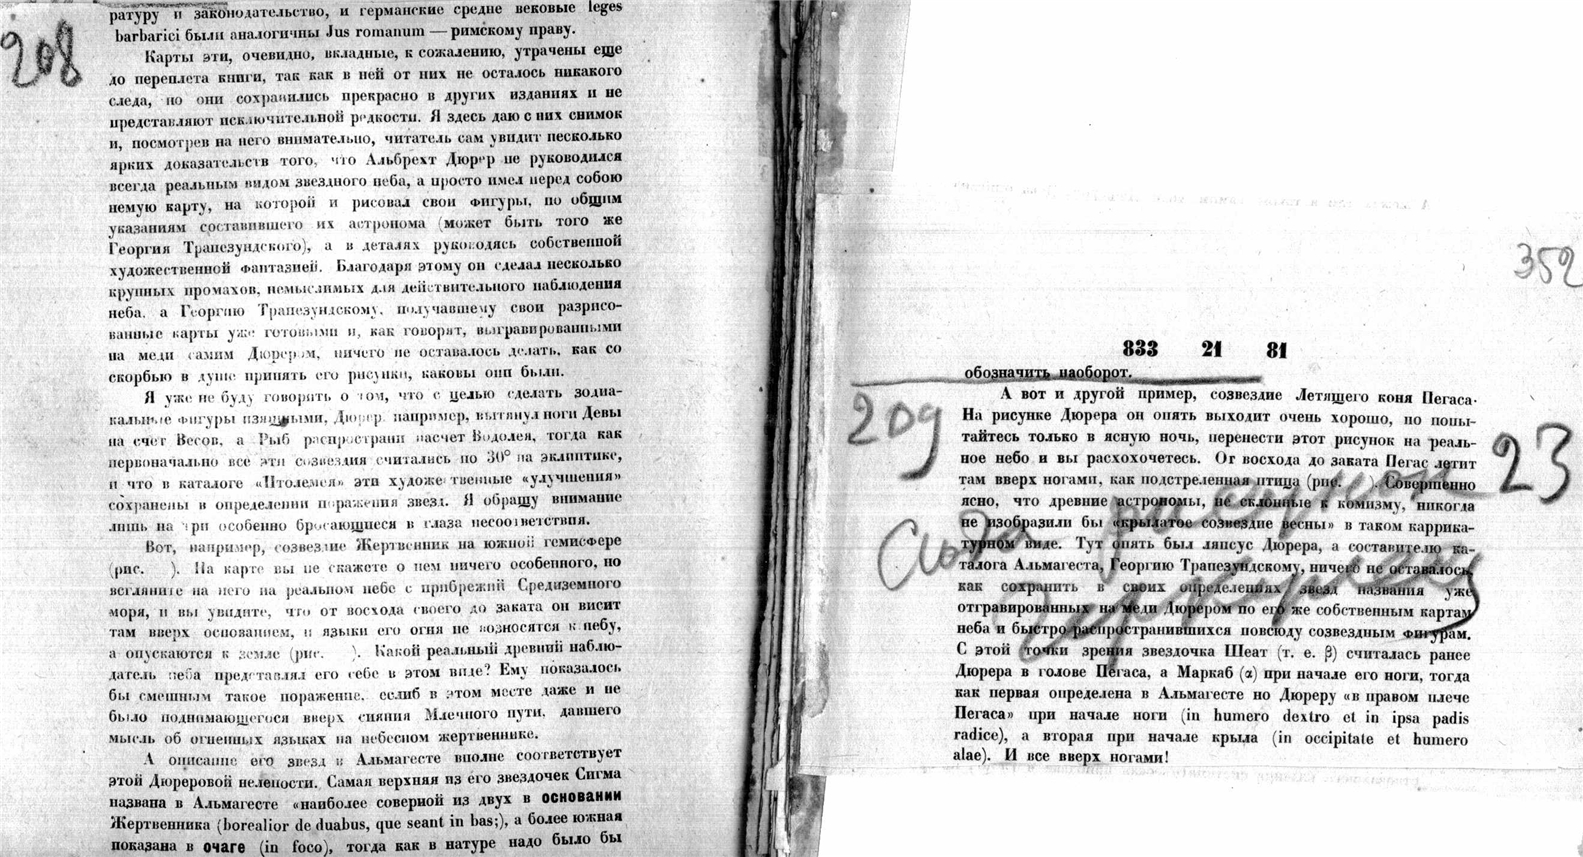 208
ратуру и законодательство, и германские средне вековые leges
barbarici были аналогичны Jus romanum — римскому праву.
Карты эти, очевидно, вкладные, к сожалению, утрачены еще
до переплета книги, так как в ней от них не осталось никакого
следа, но они сохранились прекрасно в других изданиях и не
представляют исключительной редкости. Я здесь даю с них снимок
и, посмотрев на него внимательно, читатель сам увидит несколько
ярких доказательств того, что Альбрехт Дюрер не руководился
всегда реальным видом звездного неба, а просто имел перед собою
немую карту, на которой и рисовал свои фигуры, по общим
указаниям составившего их астронома (может быть того же
Георгия Трапезундского), а в деталях руководясь собственной
художественной фантазией. Благодаря этому он сделал несколько
крупных промахов, немыслимых для действительного наблюдения
неба, а Георгию Трапезундскому, получавшему свои разрисо-
ванные карты уже готовыми и, как говорят, выгравированными
на меди самим Дюрером, ничего не оставалось делать, как со
скорбью в душе принять его рисунки, каковы они были.
Я уже не буду говорить о том, что с целью сделать зодиа-
кальные фигуры изящными, Дюрер, например, вытянул ноги Девы
на счет Весов, а Рыб распространил насчет Водолея, тогда как
первоначально все эти созвездия считались по 30° на эклиптике,
и что в каталоге «Птолемея» эти художественные «улучшения»
сохранены в определении поражения звезд. Я обращу внимание
лишь на три особенно бросающиеся в глаза несоответствия.
Вот, например, созвездие Жертвенник на южной гемисфере
(рис. ). На карте вы не скажете о нем ничего особенного, но
взгляните на него на реальном небе с прибрежий Средиземного
моря, и вы увидите, что от восхода своего до заката он висит
там вверх основанием, и языки его огня не возносятся к небу,
а опускаются к земле (рис. ). Какой реальный древний наблю-
датель неба представлял его себе в этом виде? Ему показалось
бы смешным такое поражение, еслиб в этом месте даже и не
было поднимающегося вверх сияния Млечного пути, давшего
мысль об огненных языках на небесном жертвеннике.
А описание его звезд в Альмагесте вполне соответствует
этой Дюреровой нелепости. Самая верхняя из его звездочек Сигма
названа в Альмагесте «наиболее соверной из двух в основании
Жертвенника (borealior de duabus, que seant in bas;), а более южная
показана в очаге (in foco), тогда как в натуре надо было бы
352
833 21 81
обозначить наоборот.
209
23
А вот и другой пример, созвездие Летящего коня Пегаса.
На рисунке Дюрера он опять выходит очень хорошо, но попы-
тайтесь только в ясную ночь, перенести этот рисунок на реаль-
ное небо и вы расхохочетесь. От восхода до заката Пегас летит
там вверх ногами, как подстреленная птица (рис. ). Совершенно
ясно, что древние астрономы, не склонные к комизму, никогда
не изобразили бы «крылатое созвездие весны» в таком каррика-
турном виде. Тут опять был ляпсус Дюрера, а составителю ка-
талога Альмагеста, Георгию Трапезундскому, ничего не оставалось,
как сохранить в своих определениях звезд названия уже
отгравированных на меди Дюрером по его же собственным картам
неба и быстро распространившихся повсюду созвездным фигурам.
С этой точки зрения звездочка Шеат (т. е. β) считалась ранее
Дюрера в голове Пегаса, а Маркаб (α) при начале его ноги, тогда
как первая определена в Альмагесте по Дюреру «в правом плече
Пегаса» при начале ноги (in humero dextro et in ipsa padis
radice), а вторая при начале крыла (in occipitate et humero
alae). И все вверх ногами!
Сюда рисунок